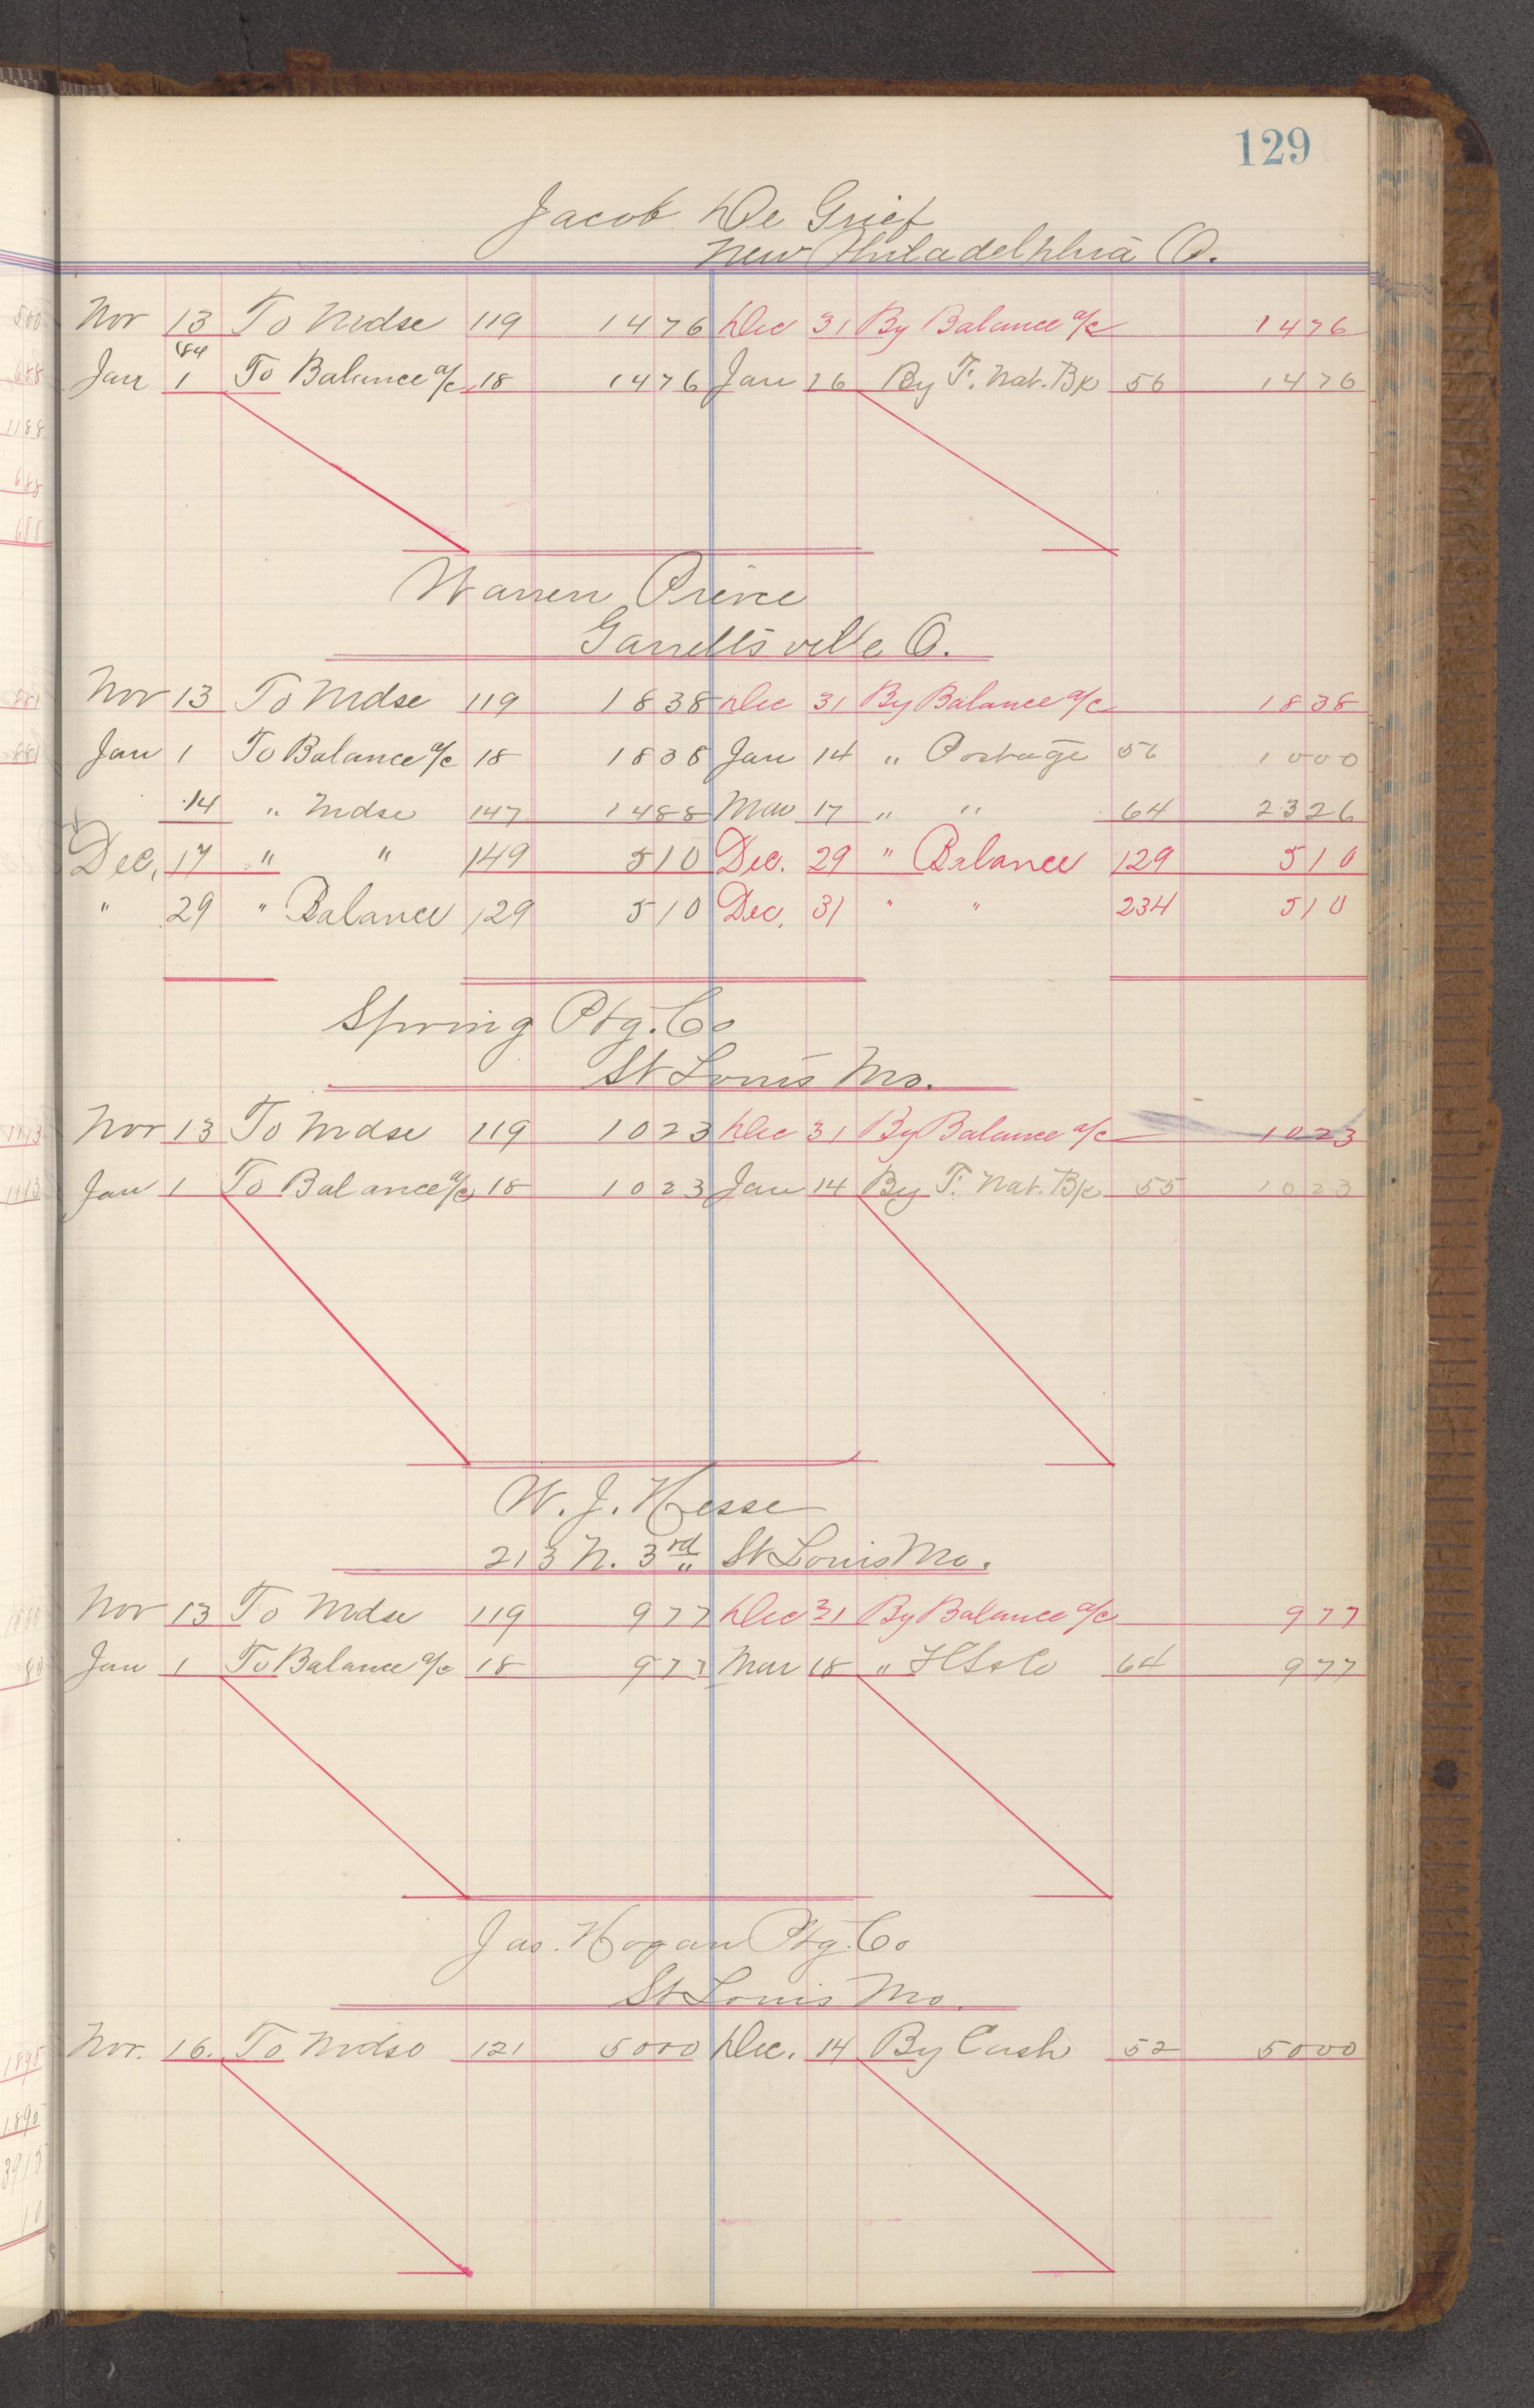 129
Jacob De Grief
New Philadelphia O.
Nov 13 To Mdse 119 1476 Dec 31 By Balance a/c 1476
'84
Jan 1 To Balance a/c 18 1476 Jan 16 By F. Nat. Bk 56 1476
Warren Peirce
Garrettsville O.
Nov 13 To Mdse 119 1838 Dec 31 By Balance a/c 1838
Jan 1 To Balance a/c 18 1838 Jan 14 " Postage 56 1000
14 " Mdse 147 1488 Mar 17 " " 64 2326
Dec. 17 " " 149 510 Dec. 29 " Balance 129 510
" 29 " Balance 129 510 Dec. 31 " " 234 510
Spring Ptg. Co
St Louis Mo.
Nov 13 To Mdse 119 1023 Dec 31 By Balance a/c 1023
Jan 1 To Balance a/c 18 1023 Jan 14 By F. Nat. Bk 55 1023
W. J. Hesse
213 N. 3rd " St Louis Mo.
Nov 13 To Mdse 119 977 Dec 31 By Balance a/c 977
Jan 1 To Balance a/c 18 977 Mar 18 " 64 977
Jas. Hogan Ptg. Co
St Louis Mo.
Nov. 16. To Mdse 121 5000 Dec. 14 By Cash 52 5000